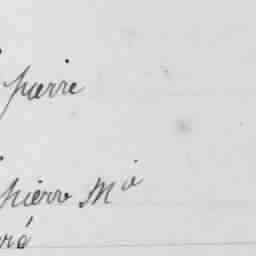 pierre
pierre M^a
ré